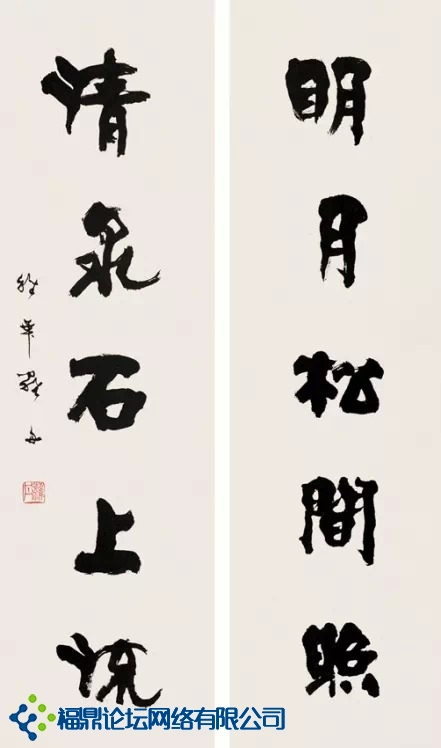 明月松間照
清泉石上流
福鼎论坛网络有限公司